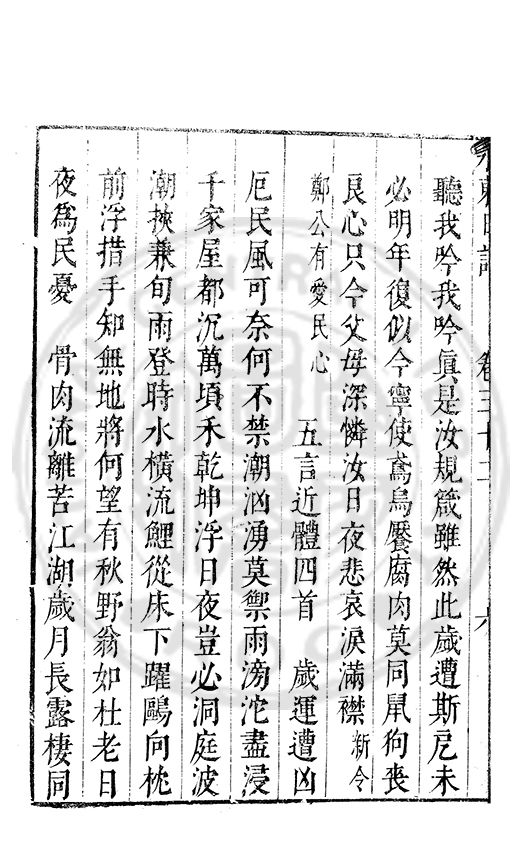 聽我吟我吟眞是汝規箴雖然此歲遭斯厄未
必明年復似今寧使鳶烏饜腐肉莫同鼠狗喪
良心只今父母深憐汝日夜悲哀淚滿襟 新令
鄭公有愛民心 五言近體四首 歲運遭凶
厄民風可奈何不禁潮洶湧莫禦雨滂沱盡浸
千家屋都沉萬頃禾乾坤浮日夜豈必洞庭波
潮挾兼旬雨登時水橫流鯉從床下躍鷗向枕
前浮措手知無地將何望有秋野翁如杜老日
夜為民憂 骨肉流離苦江湖歲月長露棲同
卷三十二
六